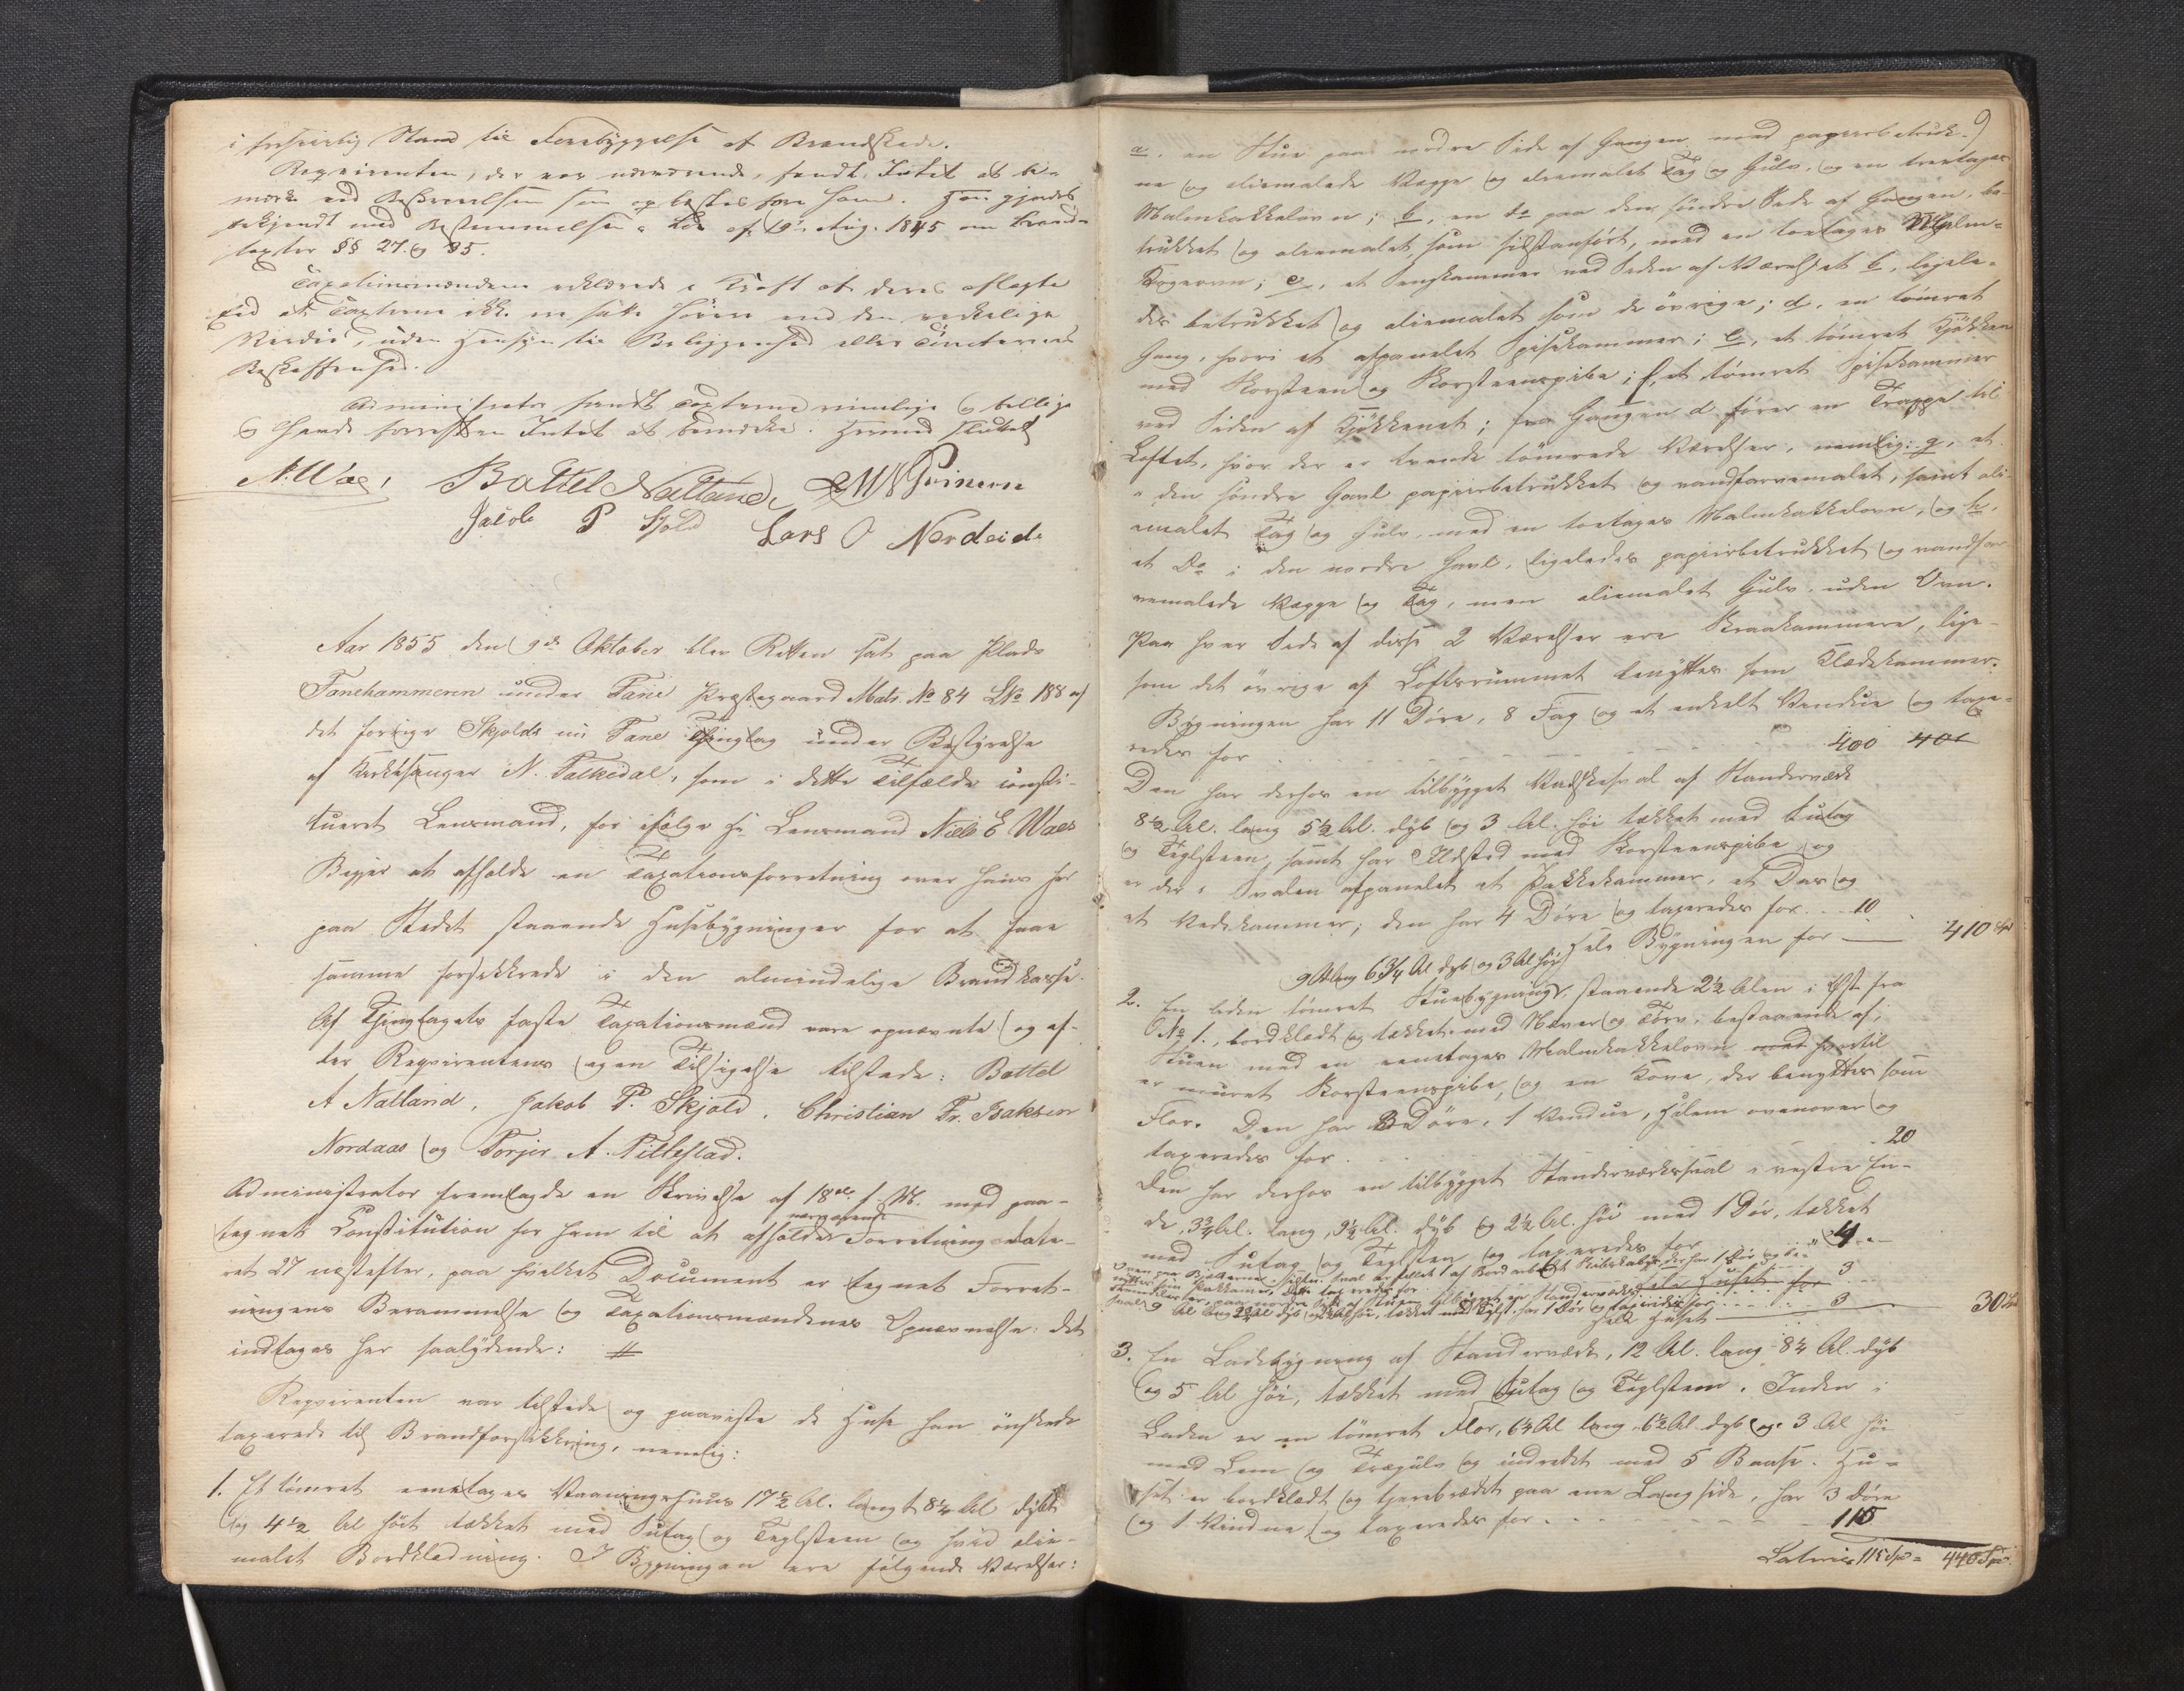 i forsvarlig Stand til Forebyggelse af Brandskade.
Reqvirenten, der var nærværende, fandt Intet at be-
mærke ved Beskrivelsen som oplæstes for ham. Han gjordes
bekjendt med Bestemmelsen i Lov af 19 Aug. 1845 om Brand-
taxter §§ 27 og 35.
Taxationsmændene erklærede i Kraft af deres aflagte
Eed at Taxterne ikke ere satte høiere end den virkelige
Værdie, uden Hensyn til Beliggenhed eller
Beskaffenhed.
Administrator fandt Taxterne rimelige og billige
og havde forresten Intet at bemærke. Hermed sluttet
N. Waes, Battel Natland,
Jacob P Skjold Lars O Nordeide
Aar 1855 den 9de Oktober blev Retten sat paa Plads
Fanehammeren under Fane Præstegaard Matr. No 84 LNo 188 af
det forrige Skjolds nu Fane Thinglag under Bestyrelse
af Kirkesanger N. Palkidal, som i dette Tilfælde consti-
tueret Lensmand, for ifølge Hr Lensmand Niels E Waes
Begjær at afholde en Taxationsforretning over hans her
paa Stedet staaende Husebygninger for at faae
samme forsikkrede i den almindelige Brandkasse.
Af Thinglagets faste Taxationsmænd vare opnævnte og ef-
ter Reqvirentens egen Tilsigelse tilstede: Battel
A Natland, Jakob P. Skjold, Christian Fr. Isaksen
Nordaas og Torger A. Tillestad.
Administrator fremlagde en Skrivelse af 18de f. M. med paa-
tegnet Constitution for ham til at afholde nærværende Forretning date-
ret 27 næstefter, paa hvilket Document er tegnet Forret-
ningens Berammelse og Taxationsmændenes Opnævnelse: det
indtages her saalydende: #
Reqvirenten var tilstede og paaviste de Huse han ønskede
taxerede til Brandforsikkring, nemlig:
1. Et tømret eenetages Vaaningshuus 17½ Al. langt 8¼ Al dybt
og 4½ Al høit tækket med Sutag og Teglsteen og hvid olie-
malet Bordklædning. I Bygningen ere følgende Værelser:
9
a, en Stue paa nordre Side af Gangen med papirbetruk-
ne og oliemalede Vægge og oliemalet Tag og Gulv, og en treetages
Malmkakkelovn; b, en do paa den søndre Side af Gangen, be-
trukket og oliemalet som sidstanført, med en toetages Malm-
Kogeovn; c, et Sengkammer ved Siden af Værelset b, ligele-
des betrukket og oliemalet som de øvrige; d, en tømret
Gang, hvori et afpanelet Spisekammer; e, et tømret Kjøkken
med Skorsteen og Skorsteenspibe; f, et tømret Spisekammer
ved Siden af Kjøkkenet; fra Gangen d fører en Trappe til
Loftet, hvor der er tvende tømrede Værelser, nemlig: g, et
i den søndre Gavl papirbetrukket og vandfarvemalet, samt oli-
emalet Tag og Gulv, med en toetages Malmkakkelovn, og h,
et Do i den nordre Gavl, ligeledes papirbetrukket og vandfar-
vemalede Vægge og Tag, men oliemalet Gulv, uden Ovn.
Paa hver Side af disse 2 Værelser ere Kraakammere, lige-
som det øvrige af Loftsrummet benyttes som Klædekammer.
Bygningen har 11 Døre, 8 Fag og et enkelt Vindue og taxe-
redes for 400 400
Den har derhos en tilbygget Vadskesval af Standerværk
8½ Al. lang 5½ Al. dyb og 3 Al. høi tækket med Sutag
og Teglsteen, samt har Ildsted med Skorsteenspibe, og
er der i Svalen afpanelet et Pakkekammer, et Das og
et Vedekammer; den har 4 Døre og taxeredes for 10
Hele Bygningen for 410 Sp
9 Al lang 6¾ Al dyb og 3 Al høi
2. En liden tømret Stuebygning, staaende 2½ Alen i Øst fra
No 1., bordklædt og tækket med Næver og Torv, bestaaende af:
Stuen med en eenetages Malmkakkelovn med hvortil
er muret Skorsteenspibe, og en Kove, der benyttes som
Flor. Den har 3 Døre, 1 Vindue, Hjelm ovenover og
taxeredes for 20
Den har derhos en tilbygget Standerværkssval i vestre En-
de, 3¾ Al. lang, 3½ Al. dyb og 2½ Al. høi med 1 Dør, tækket
med Sutag og Teglsten og taxeredes for 4
hele Huset for
3
3
hele Huset 30 Sp
3. En Ladebygning af Standerværk, 12 Al. lang 8¼ Al. dyb
og 5 Al høi, tækket med Sutag og Teglsteen. Inden i
Laden er en tømret Flor, 6¼ Al lang 6½ Al dyb og 3 Al høi
med Lem og Trægulv og indrettet med 5 Baase. Hu-
set er bordklædt og tjærebrædet paa ene Langside, har 3 Døre
og 1 Vindue og taxeredes for 115
Lateris 115 Sp = 440 Sp.